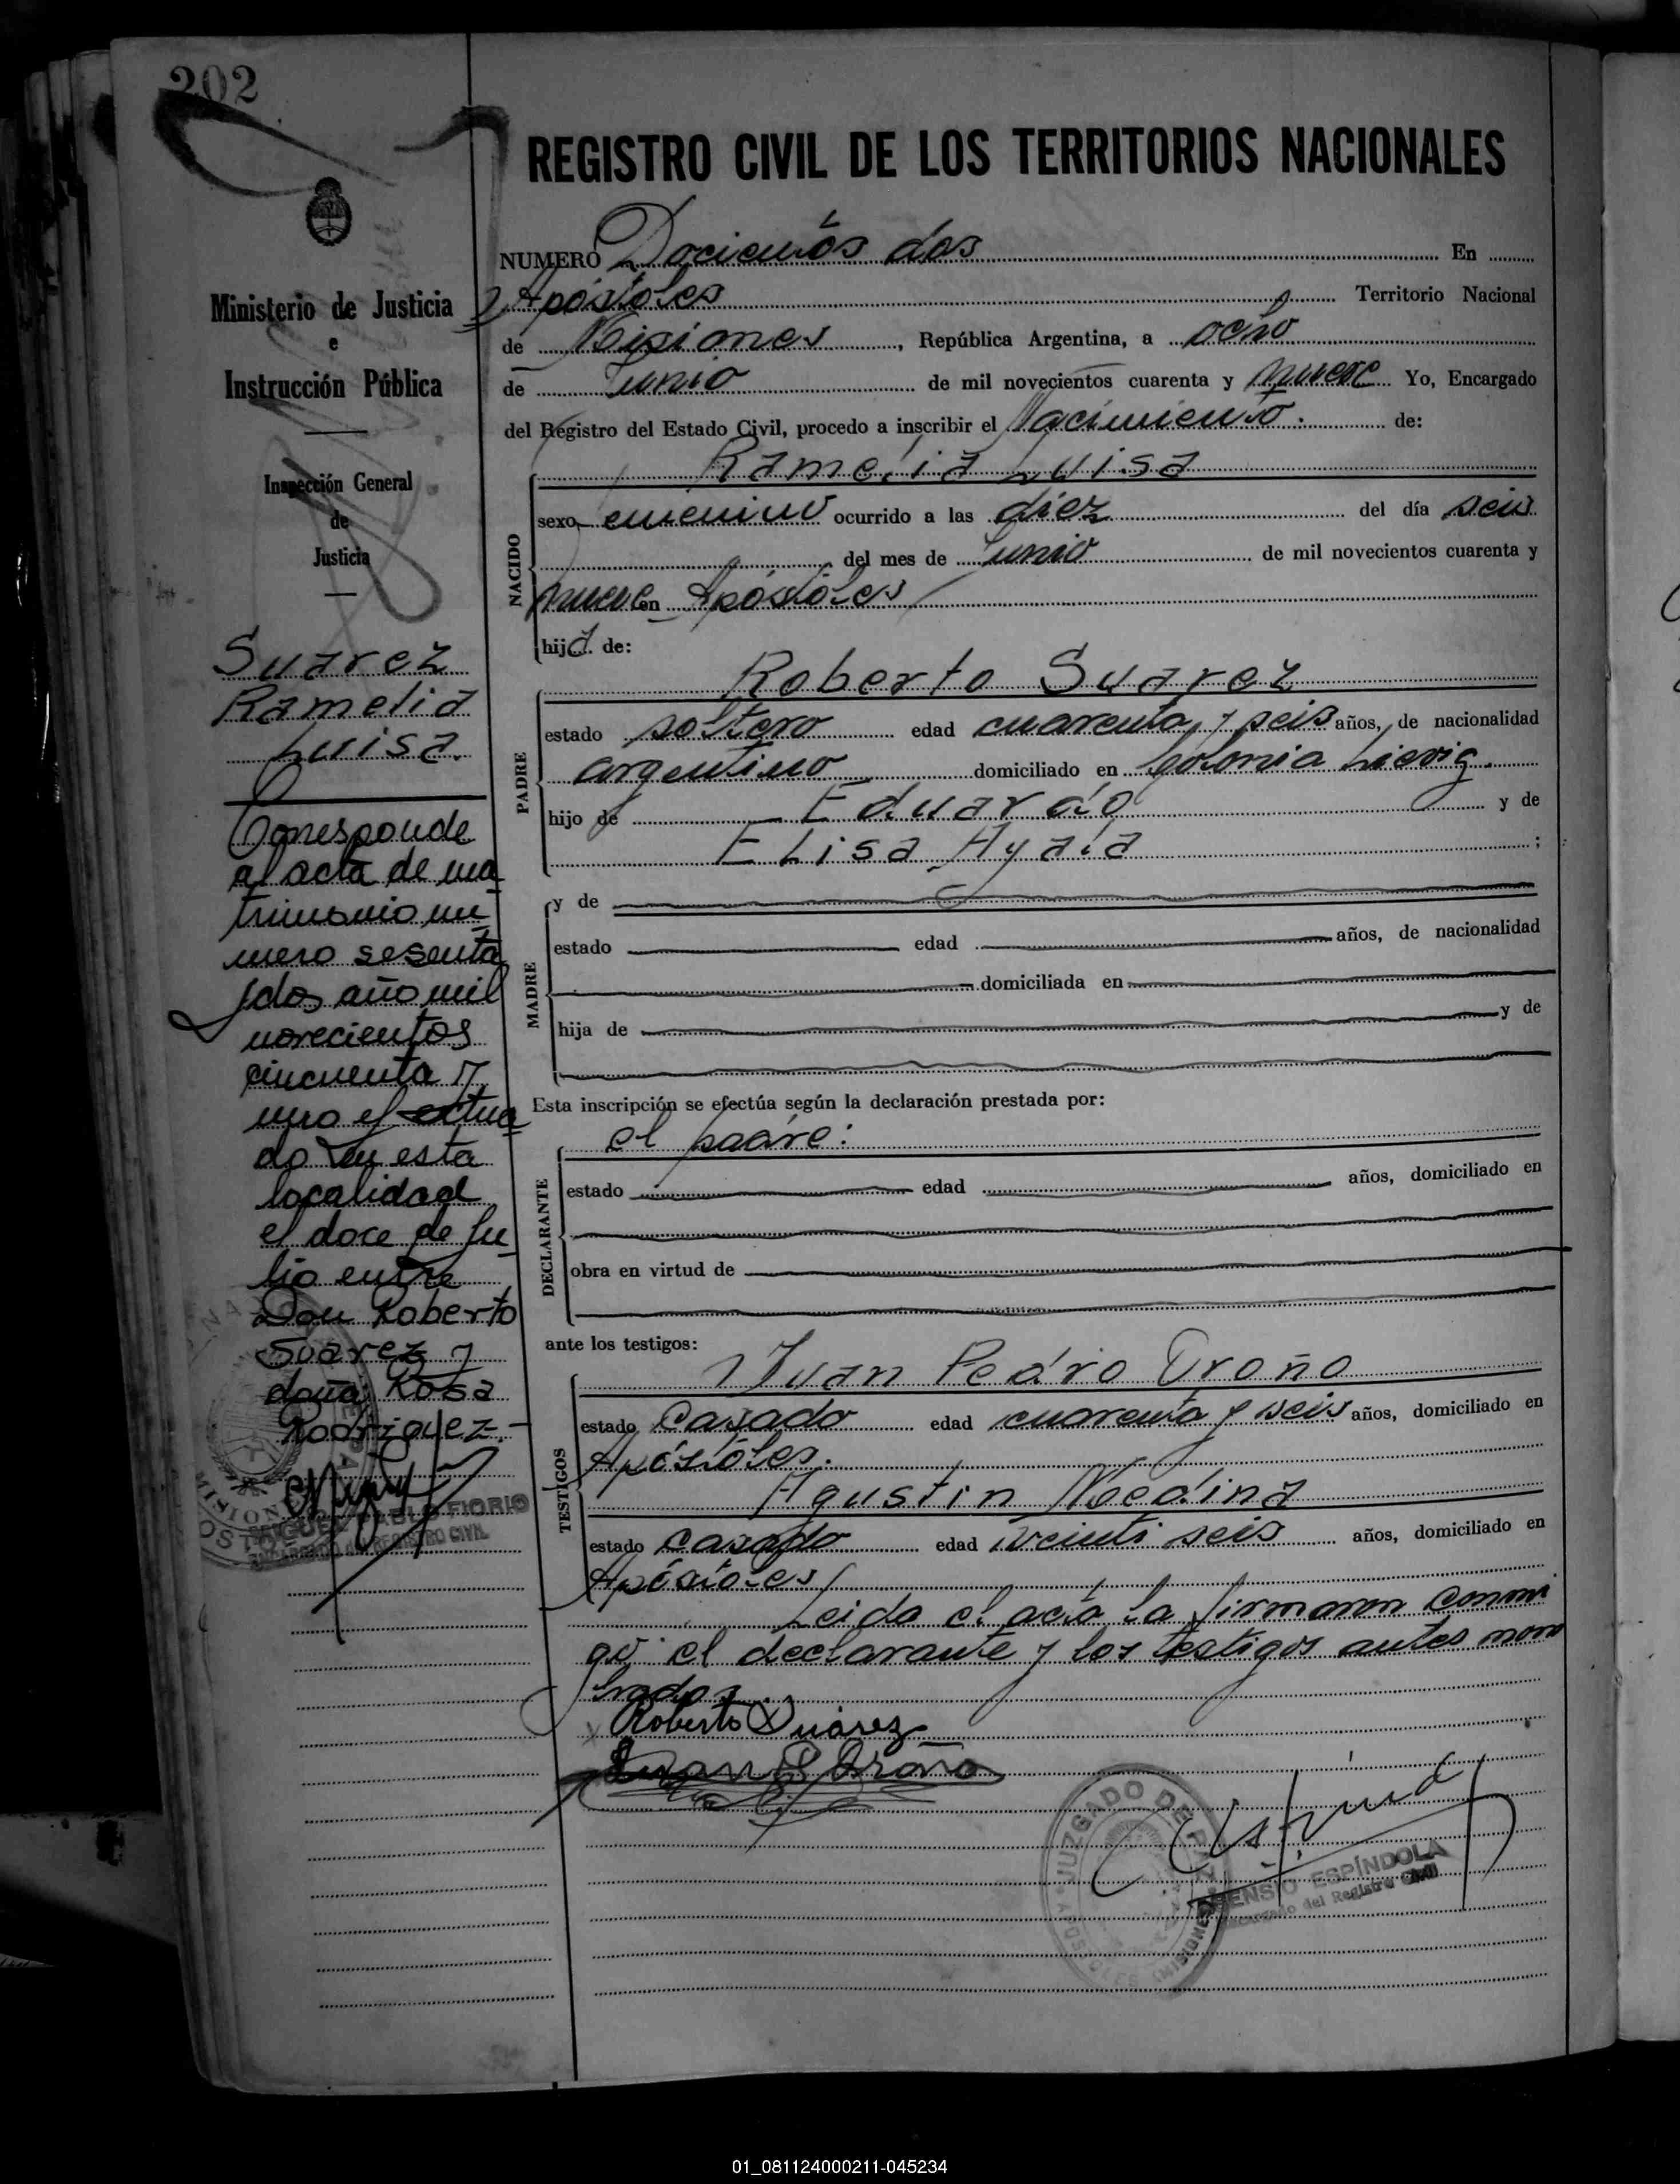 202
REGISTRO CIVIL DE LOS TERRITORIOS NACIONALES
Ministerio de Justicia
e
Instrucción Pública
Inspección General
de
Justicia
Suarez
Ramelia
Luisa.
Corresponde
al acta de ma
trimonio nu
mero sesenta
y dos año mil
novecientos
cincuenta y
uno efectua
do en esta
localidad
el doce de Ju
lio entre
Don Roberto
Suarez y
doña Rosa
Rodriguez.-
MIGUEL PABLO FIORIO
ENCARGADO DEL REGISTRO CIVIL
NUMERO Docientos dos En
Apóstoles Territorio Nacional
de Misiones, República Argentina, a ocho
de Junio de mil novecientos cuarenta y nueve Yo, Encargado
del Registro del Estado Civil, procedo a inscribir el Nacimiento. de:
Ramelia Luisa
NACIDO
sexo femenino ocurrido a las diez del día seis
del mes de Junio de mil novecientos cuarenta y
nueve en Apóstoles
hija de:
Roberto Suarez
PADRE
estado soltero edad cuarenta y seis años, de nacionalidad
argentino domiciliado en Colonia Lievig.
hijo de Eduardo y de
Elisa Ayala ;
MADRE
y de
estado edad años, de nacionalidad
domiciliada en
hija de y de
Esta inscripción se efectúa según la declaración prestada por:
el padre:
DECLARANTE
estado edad años, domiciliado en
obra en virtud de
ante los testigos:
Juan Pedro Oroño
TESTIGOS
estado Casado edad cuarenta y seis años, domiciliado en
Apóstoles.
Agustin Medina
estado casado edad veinti seis años, domiciliado en
Apóstoles
Leida el acta la firmaron conmi
go el declarante y los testigos antes nom
brados.
Roberto Suárez
Juan P. Oroño
JUZGADO DE PAZ
APOSTOLES (MISIONES)
ASENSIO ESPÍNDOLA
Encargado del Registro Civil
01_081124000211-045234